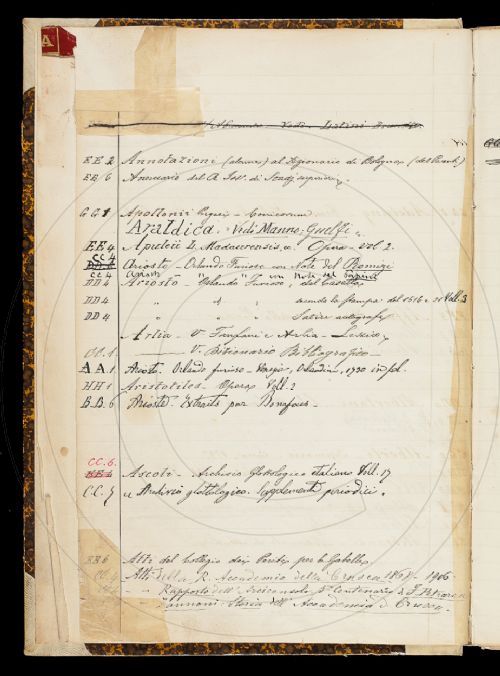 A
Vedi Listini
EE 2 Annotazioni (alcune) al Dizionario di Bologna (del
EE/6 Annuario del R. Ist.
GG 1 Apollonii
Araldica. Vedi Manno; Guelfi.
EE 9 Apuleii L. Madaurensis Opera vol 2.
CC 4 Ariosto - Orlando Furioso con Note del Romizi
CC 4 Ariosto " " " con Note del Papini
DD 4 Ariosto - Orlando Furioso, del Casella
DD 4 " " " secondo la stampa del 1516 e 21 Voll. 3
DD 4 " " Satire autografe
Arlia - V. Fanfani e Arlia - Lessico
V. Dizionario Bibliografico
AA 1 Ariosto. Orlando furioso - Venezia, Orlandini, 1730 in fol.
HH 1 Aristoteles - Opera Voll. 2
B.B. 6 Ariosto. Extraits par Bonafous -
CC. 6.
Ascoli - Archivio Glottologico italiano Voll. 17
CC. 7 id Archivio glottologico. Supplementi periodici.
EE 6 Atti del Collegio dei Periti per le Gabelle
Atti della R. Accademia della Crusca 1869 - 1906
Rapporto dell'Arciconsolo, 5° Centenario di F. Petrarca
Zannoni: Storia dell'Accademia d. Crusca -